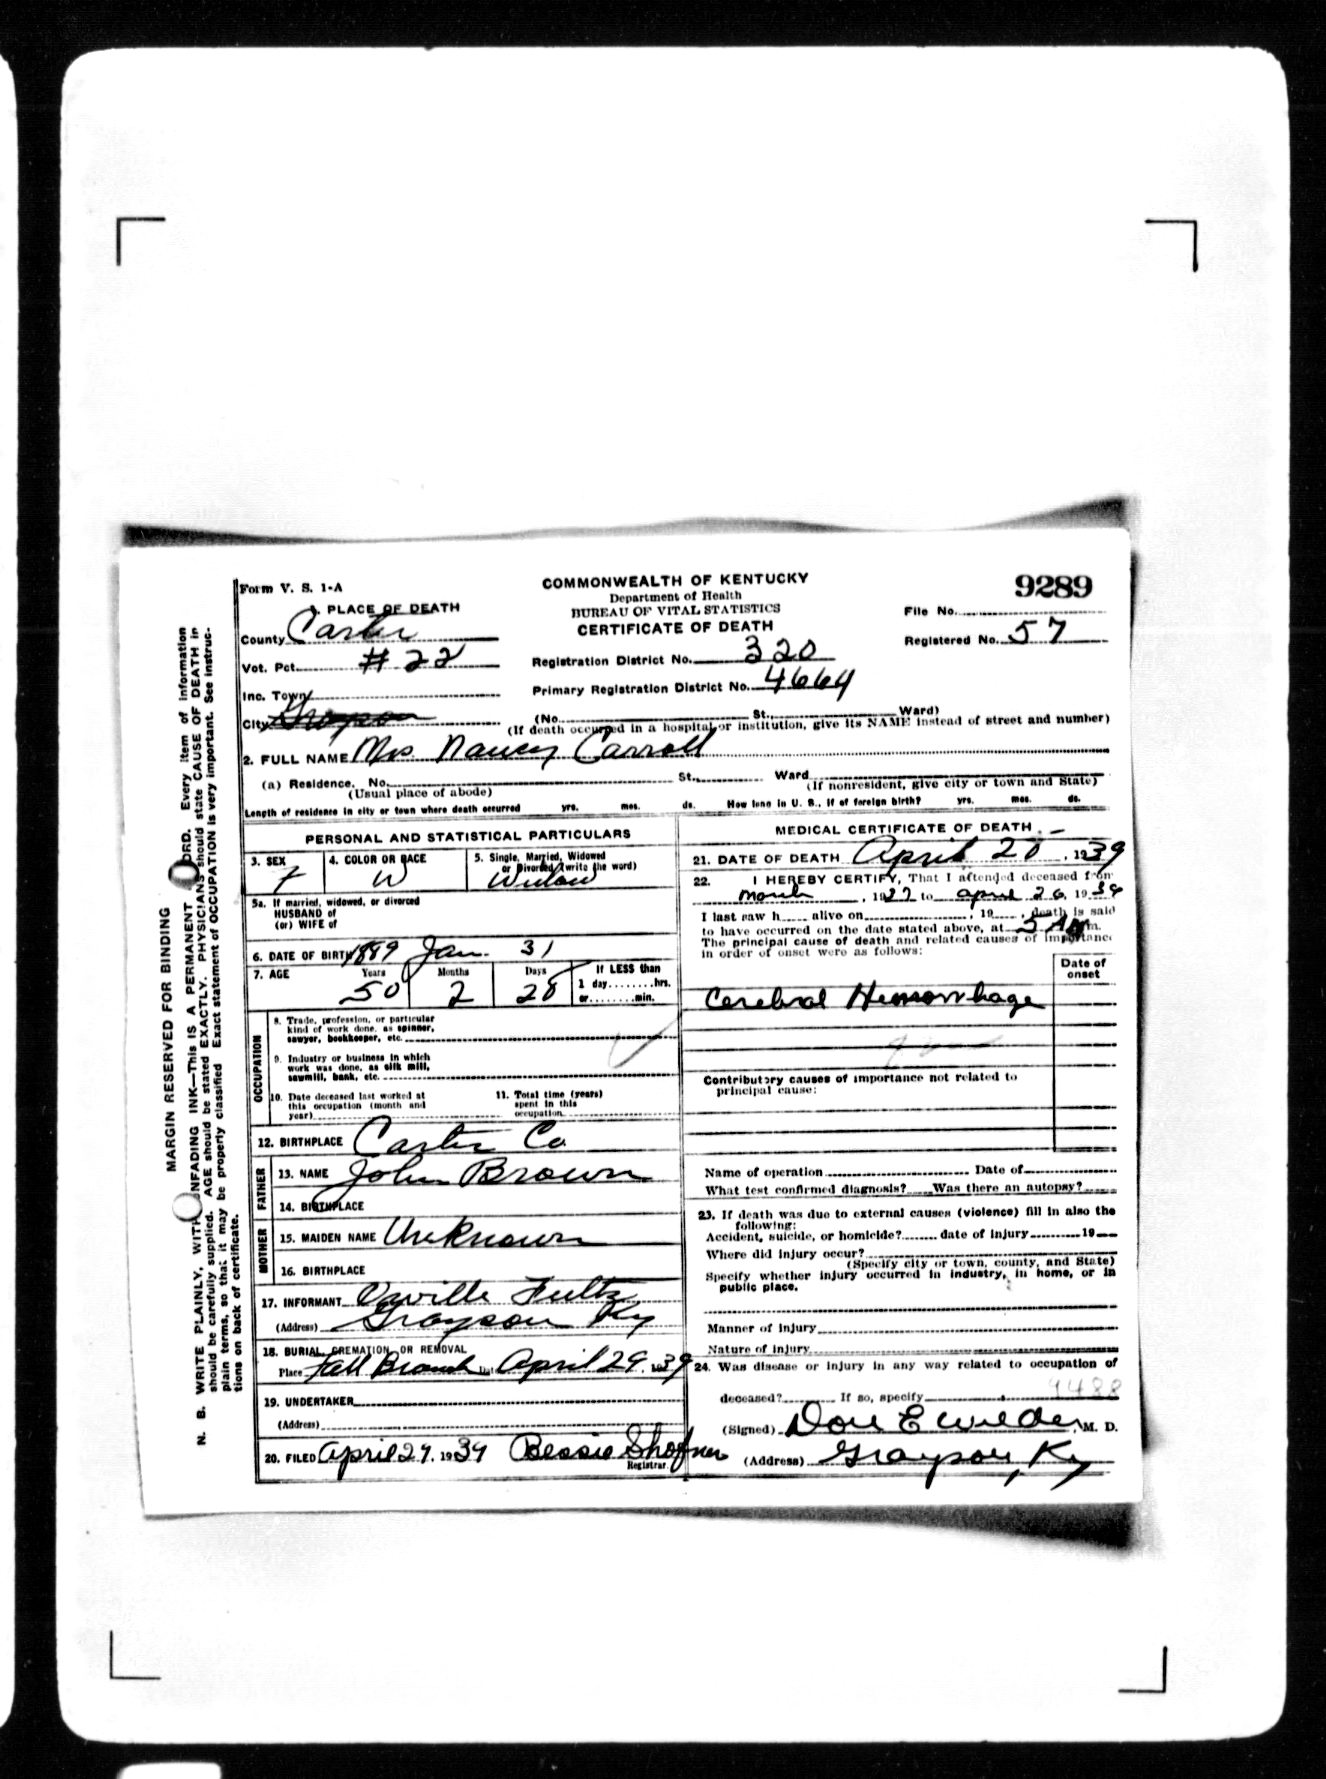 Form V. S. 1-A
COMMONWEALTH OF KENTUCKY
Department of Health
BUREAU OF VITAL STATISTICS
CERTIFICATE OF DEATH
9289
File No.
Registered No. 57
1. PLACE OF DEATH
County Carter
Vot. Pct. # 22
Inc. Town
City Grayson
Registration District No. 320
Primary Registration District No. 4664
(No. St., Ward)
(If death occurred in a hospital or institution, give its NAME instead of street and number)
2. FULL NAME Mrs. Nancy Carroll
(a) Residence. No. St., Ward
(Usual place of abode) (If nonresident, give city or town and State)
Length of residence in city or town where death occurred yrs. mos. ds. How long in U. S., if of foreign birth? yrs. mos. ds.
PERSONAL AND STATISTICAL PARTICULARS
3. SEX F
4. COLOR OR RACE W
5. Single, Married, Widowed or Divorced (write the word) Widow
5a. If married, widowed, or divorced
HUSBAND of
(or) WIFE of
6. DATE OF BIRTH 1889 Jan. 31
7. AGE Years 50 Months 2 Days 28 If LESS than 1 day........hrs. or........min.
OCCUPATION
8. Trade, profession, or particular
kind of work done, as spinner,
sawyer, bookkeeper, etc.
9. Industry or business in which
work was done, as silk mill,
sawmill, bank, etc.
10. Date deceased last worked at
this occupation (month and
year)
11. Total time (years)
spent in this
occupation
12. BIRTHPLACE Carter Co
FATHER
13. NAME John Brown
14. BIRTHPLACE
MOTHER
15. MAIDEN NAME Unknown
16. BIRTHPLACE
17. INFORMANT Orville Fultz
(Address) Grayson Ky
18. BURIAL, CREMATION, OR REMOVAL
Place Fall Branch Date April 29, 1939
19. UNDERTAKER
(Address)
20. FILED April 29, 1939 Bessie Shofner
Registrar.
MEDICAL CERTIFICATE OF DEATH
21. DATE OF DEATH April 20, 1939
22. I HEREBY CERTIFY, That I attended deceased from
March, 1937 to April 26, 1939
I last saw h.... alive on, 19...., death is said
to have occurred on the date stated above, at 5 AM m.
The principal cause of death and related causes of importance
in order of onset were as follows:
Date of
onset
Cerebral Hemorrhage
Contributory causes of importance not related to
principal cause:
Name of operation Date of
What test confirmed diagnosis? Was there an autopsy?
23. If death was due to external causes (violence) fill in also the
following:
Accident, suicide, or homicide? date of injury 19
Where did injury occur?
(Specify city or town, county, and State)
Specify whether injury occurred in industry, in home, or in
public place.
Manner of injury
Nature of injury
24. Was disease or injury in any way related to occupation of
9488
deceased? If so, specify
(Signed) Don E Wilder, M. D.
(Address) Grayson, Ky
MARGIN RESERVED FOR BINDING
N. B. WRITE PLAINLY, WITH UNFADING INK—This IS A PERMANENT RECORD. Every item of information
should be carefully supplied. AGE should be stated EXACTLY. PHYSICIANS should state CAUSE OF DEATH in
plain terms, so that it may be properly classified. Exact statement of OCCUPATION is very important. See instruc-
tions on back of certificate.